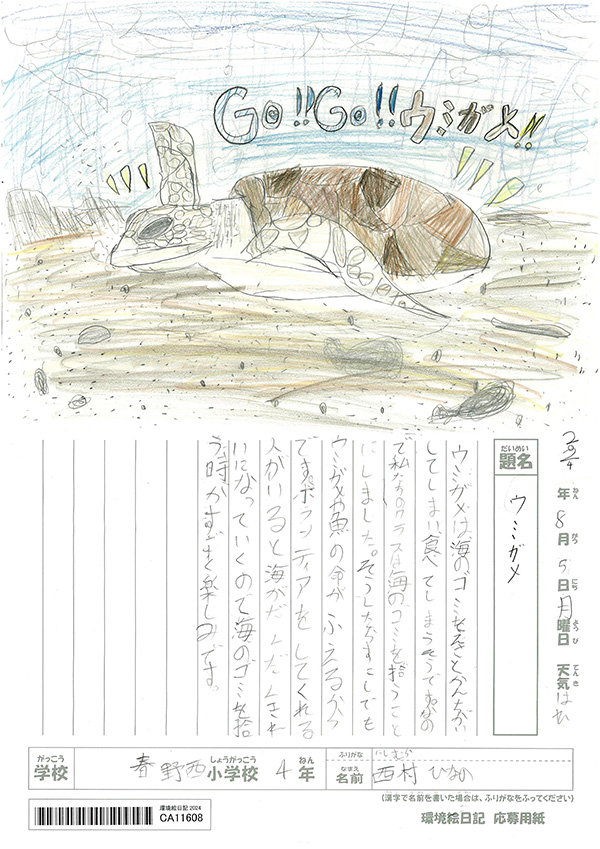 Go!!Go!!ウミガメ!!
2024年8月5日月曜日 天気はれ
ねん がつ にち ようび てんき
だいめい
題名 ウミガメ
ウミガメは海のゴミをえさとかんちがい
してしまい、食べてしまうそうです。なの
で私たちのクラスは海のゴミを拾うこと
にしました。そうしたらすこしでも
ウミガメや魚の命がふえるから
です。ボランティアをしてくれる
人がいると海がだんだんきれ
いになっていくので海のゴミを拾
う時がすごく楽しみです。
がっこう しょうがっこう ねん
学校 春野西小学校 4年
ふりがな にしむら
なまえ
名前 西村 ひなの
(漢字で名前を書いた場合は、ふりがなをふってください)
環境絵日記 2024
CA11608
環境絵日記 応募用紙